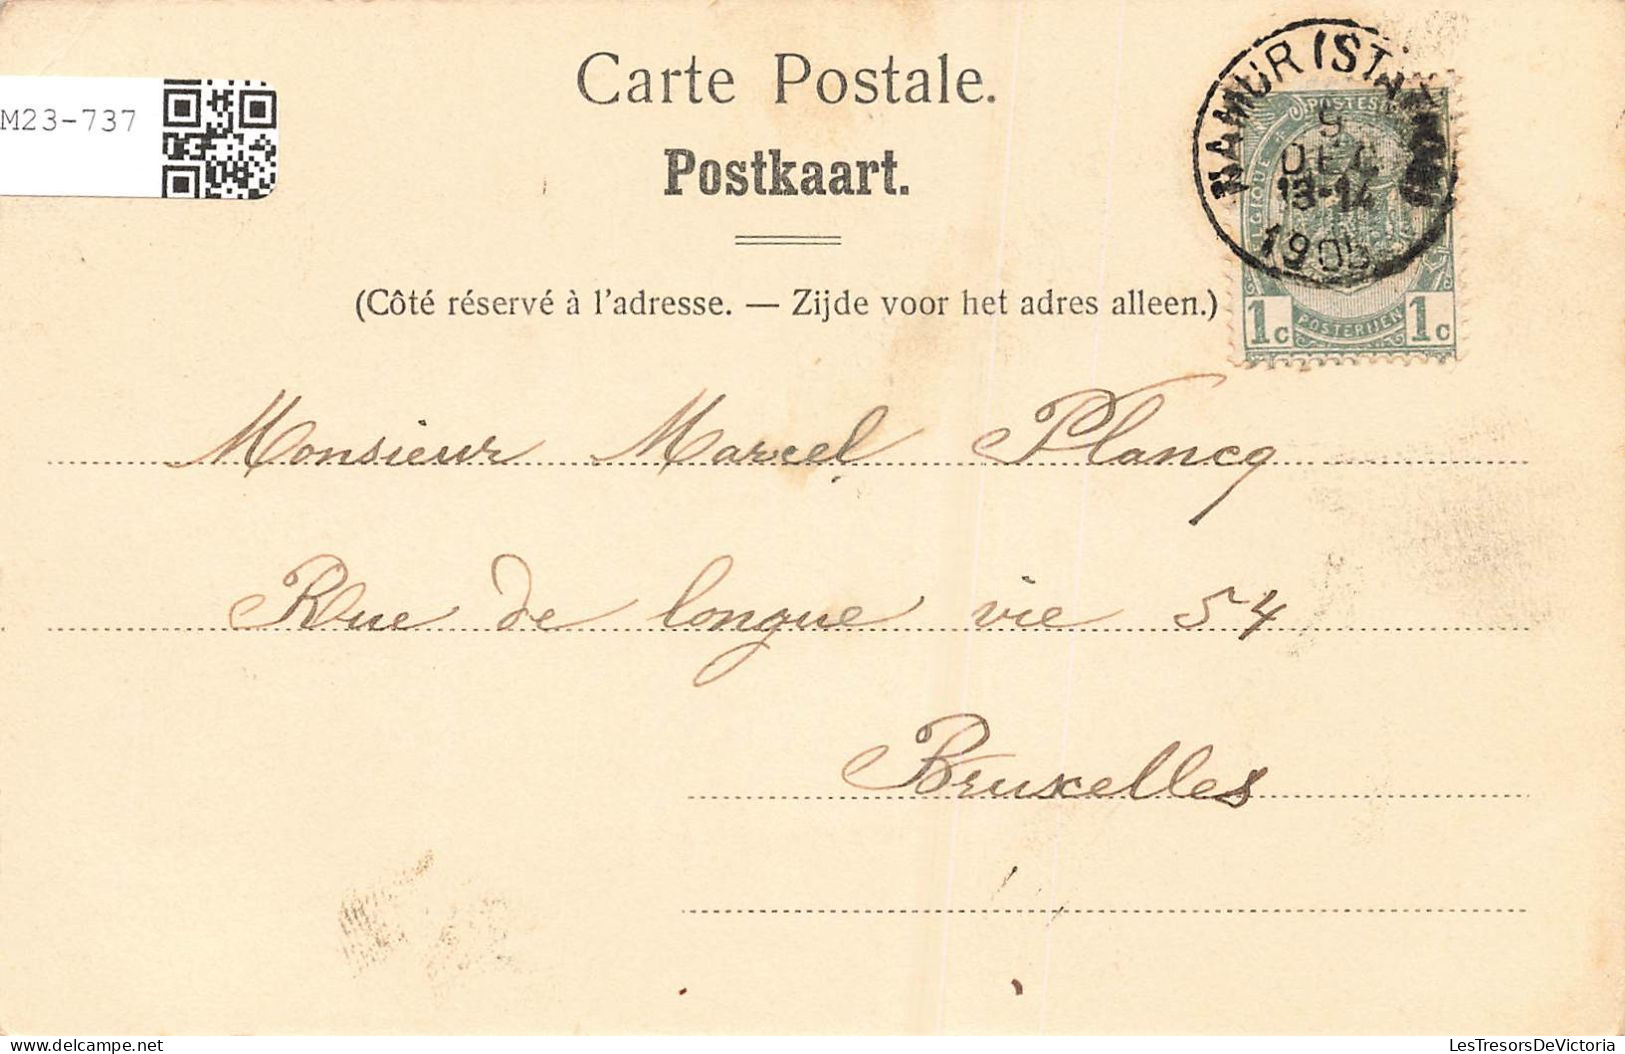 Carte Postale.
Postkaart.
M23-737
(Côté réservé à l'adresse. — Zijde voor het adres alleen.)
NAMUR (STATION)
DEC
13-14
1905
POSTES
BELGIQUE
1c POSTERIJEN 1c
Monsieur Marcel Plancq
Rue de longue vie 54
Bruxelles
Delcampe.net
LesTresorsDeVictoria